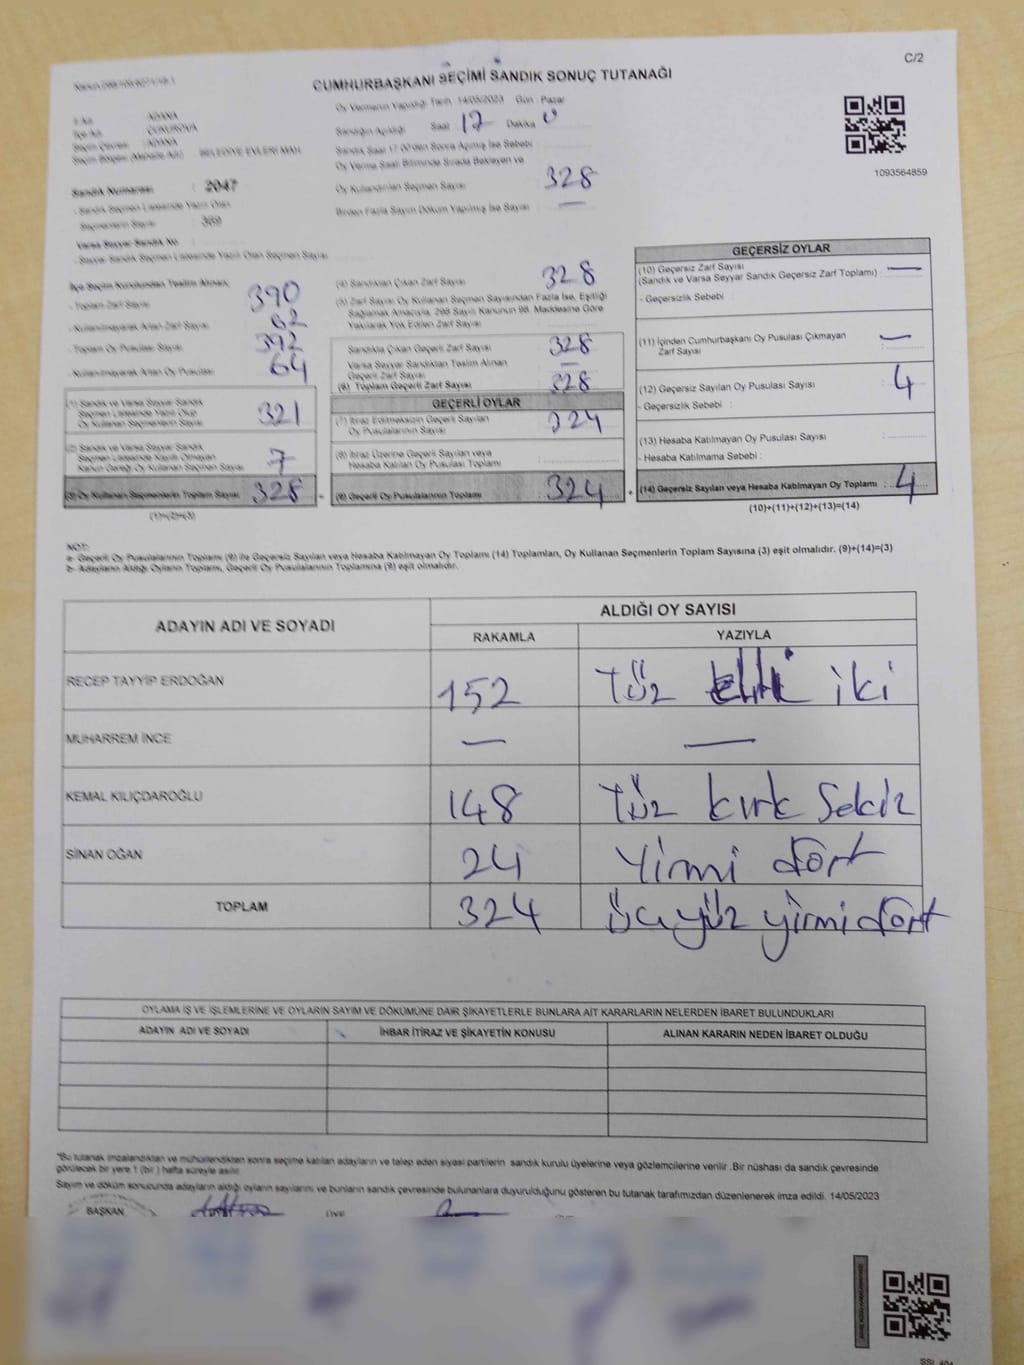 C/2
CUMHURBAŞKANI SEÇİMİ SANDIK SONUÇ TUTANAĞI
Oy Vermenin Yapıldığı Tarih 14/05/2023 Gün Pazar
İl Adı : ADANA
İlçe Adı : ÇUKUROVA
Seçim Çevresi : ADANA
Seçim Bölgesi (Mahalle Adı) BELEDİYE EVLERİ MAH.
Sandık Numarası : 2047
- Sandık Seçmen Listesinde Yazılı Olan
Seçmenlerin Sayısı : 369
Varsa Seyyar Sandık No
- Seyyar Sandık Seçmen Listesinde Yazılı Olan Seçmen Sayısı
Sandığın Açıldığı Saat 17 Dakika 0
Sandık Saat 17.00'den Sonra Açılmış İse Sebebi
Oy Verme Saati Bitiminde Sırada Bekleyen ve
Oy Kullandırılan Seçmen Sayısı 328
Birden Fazla Sayım Döküm Yapılmış İse Sayısı —
1093564859
İlçe Seçim Kurulundan Teslim Alınan;
- Toplam Zarf Sayısı 390
- Kullanılmayarak Artan Zarf Sayısı 62
- Toplam Oy Pusulası Sayısı 392
- Kullanılmayarak Artan Oy Pusulası 64
(1) Sandık ve Varsa Seyyar Sandık
Seçmen Listesinde Yazılı Olup
Oy Kullanan Seçmenlerin Sayısı 321
(2) Sandık ve Varsa Seyyar Sandık
Seçmen Listesinde Kayıtlı Olmayan
Kanun Gereği Oy Kullanan Seçmen Sayısı 7
(3) Oy Kullanan Seçmenlerin Toplam Sayısı 328
(1)+(2)=(3)
(4) Sandıktan Çıkan Zarf Sayısı 328
(5) Zarf Sayısı Oy Kullanan Seçmen Sayısından Fazla İse, Eşitliği
Sağlamak Amacıyla, 298 Sayılı Kanunun 98. Maddesine Göre
Yakılarak Yok Edilen Zarf Sayısı
Sandıkta Çıkan Geçerli Zarf Sayısı 328
Varsa Seyyar Sandıktan Teslim Alınan
Geçerli Zarf Sayısı —
(6) Toplam Geçerli Zarf Sayısı 328
GEÇERLİ OYLAR
(7) İtiraz Edilmeksizin Geçerli Sayılan
Oy Pusulalarının Sayısı 324
(8) İtiraz Üzerine Geçerli Sayılan veya
Hesaba Katılan Oy Pusulası Toplamı
(9) Geçerli Oy Pusulalarının Toplamı 324
GEÇERSİZ OYLAR
(10) Geçersiz Zarf Sayısı
(Sandık ve Varsa Seyyar Sandık Geçersiz Zarf Toplamı) : —
- Geçersizlik Sebebi :
(11) İçinden Cumhurbaşkanı Oy Pusulası Çıkmayan
Zarf Sayısı —
(12) Geçersiz Sayılan Oy Pusulası Sayısı : 4
- Geçersizlik Sebebi :
(13) Hesaba Katılmayan Oy Pusulası Sayısı :
- Hesaba Katılmama Sebebi :
(14) Geçersiz Sayılan veya Hesaba Katılmayan Oy Toplamı : 4
(10)+(11)+(12)+(13)=(14)
NOT:
a- Geçerli Oy Pusulalarının Toplamı (9) ile Geçersiz Sayılan veya Hesaba Katılmayan Oy Toplamı (14) Toplamları, Oy Kullanan Seçmenlerin Toplam Sayısına (3) eşit olmalıdır. (9)+(14)=(3)
b- Adayların Aldığı Oyların Toplamı, Geçerli Oy Pusulalarının Toplamına (9) eşit olmalıdır.
ADAYIN ADI VE SOYADI ALDIĞI OY SAYISI
RAKAMLA YAZIYLA
RECEP TAYYİP ERDOĞAN 152 Yüz elli iki
MUHARREM İNCE — —
KEMAL KILIÇDAROĞLU 148 Yüz kırk Sekiz
SİNAN OĞAN 24 Yirmi dört
TOPLAM 324 üçyüz yirmi dört
OYLAMA İŞ VE İŞLEMLERİNE VE OYLARIN SAYIM VE DÖKÜMÜNE DAİR ŞİKAYETLERLE BUNLARA AİT KARARLARIN NELERDEN İBARET BULUNDUKLARI
ADAYIN ADI VE SOYADI İHBAR İTİRAZ VE ŞİKAYETİN KONUSU ALINAN KARARIN NEDEN İBARET OLDUĞU
*Bu tutanak imzalandıktan ve mühürlendikten sonra seçime katılan adayların ve talep eden siyasi partilerin sandık kurulu üyelerine veya gözlemcilerine verilir .Bir nüshası da sandık çevresinde
görülecek bir yere 1 (bir ) hafta süreyle asılır.
Sayım ve döküm sonucunda adayların aldığı oyların sayılarını ve bunların sandık çevresinde bulunanlara duyurulduğunu gösteren bu tutanak tarafımızdan düzenlenerek imza edildi. 14/05/2023
BAŞKAN ÜYE ÜYE